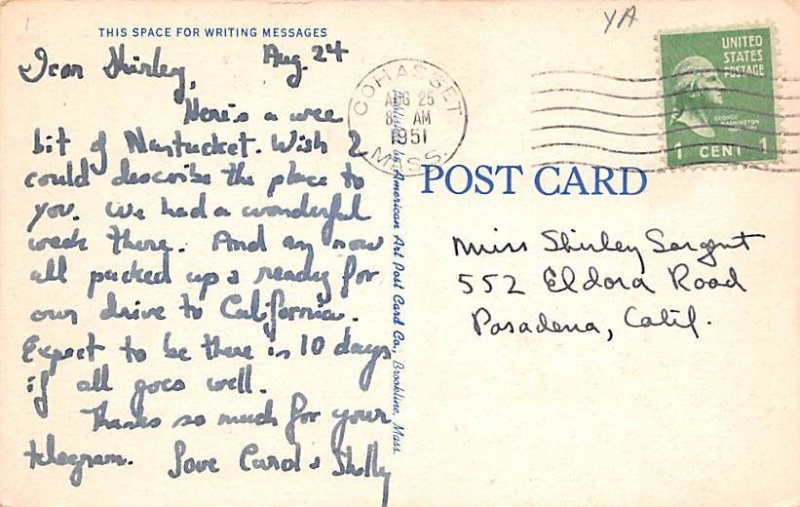 YA
THIS SPACE FOR WRITING MESSAGES
Dear Shirley, Aug. 24
Here's a wee
bit of Nantucket. Wish I
could describe the place to
you. We had a wonderful
week there. And am now
all packed up & ready for
our drive to California.
Expect to be there in 10 days
if all goes well.
Thanks so much for your
telegram. Love Carol & Shelly
Published by American Art Post Card Co., Brookline, Mass.
COHASSET
AUG 25
8 AM
1951
MASS.
UNITED
STATES
POSTAGE
GEORGE
WASHINGTON
1 CENT 1
POST CARD
Miss Shirley Sargent
552 Eldora Road
Pasadena, Calif.